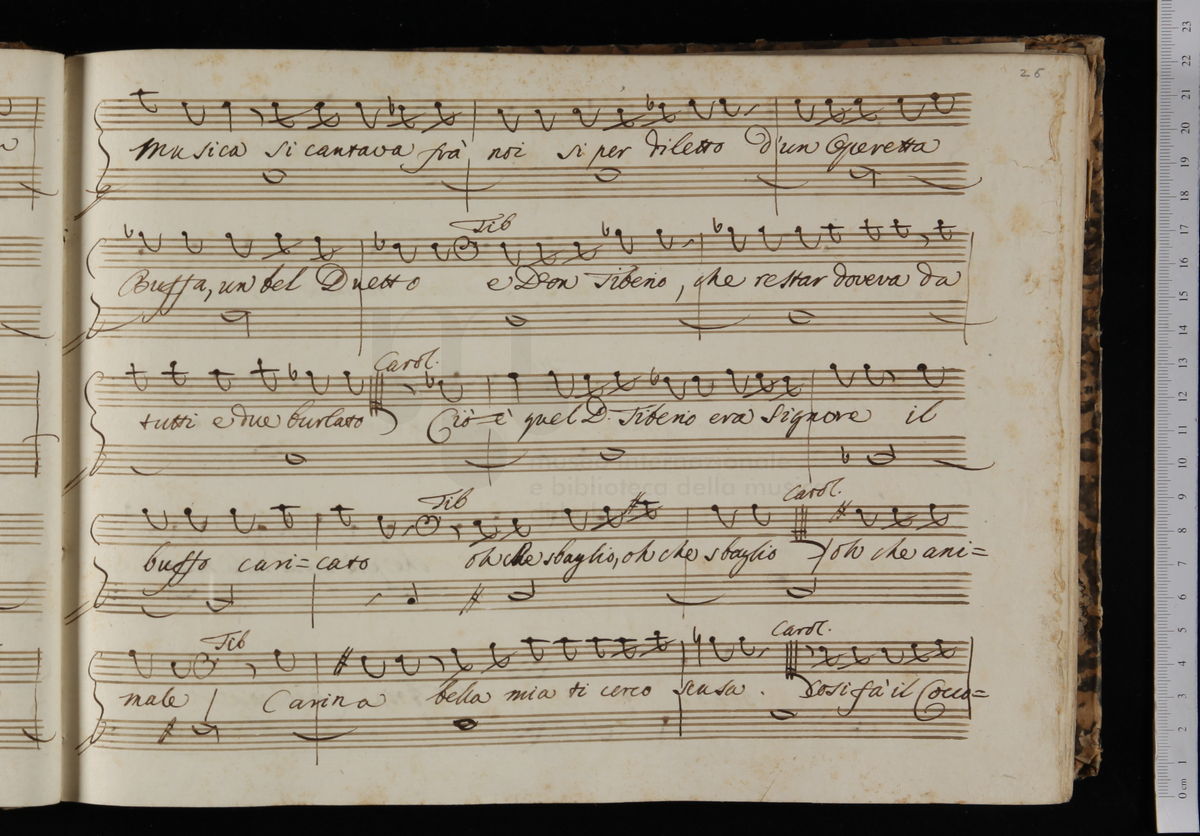 26
Musica si cantava frà noi si per diletto d'un Operetta
Tib
Buffa, un bel Duetto e Don Tiberio, che restar doveva da
Carol.
tutti e due burlato Ciò è quel D. Tiberio era Signore il
e biblioteca della mus
Tib Carol.
buffo cari=cato oh che sbaglio, oh che sbaglio oh che ani=
Tib Carol.
male Carina bella mia ti cerco scusa. Cosi fà il Cocco=
23
22
21
20
19
18
17
16
15
14
13
12
11
10
9
8
7
6
5
4
3
2
1
0 cm